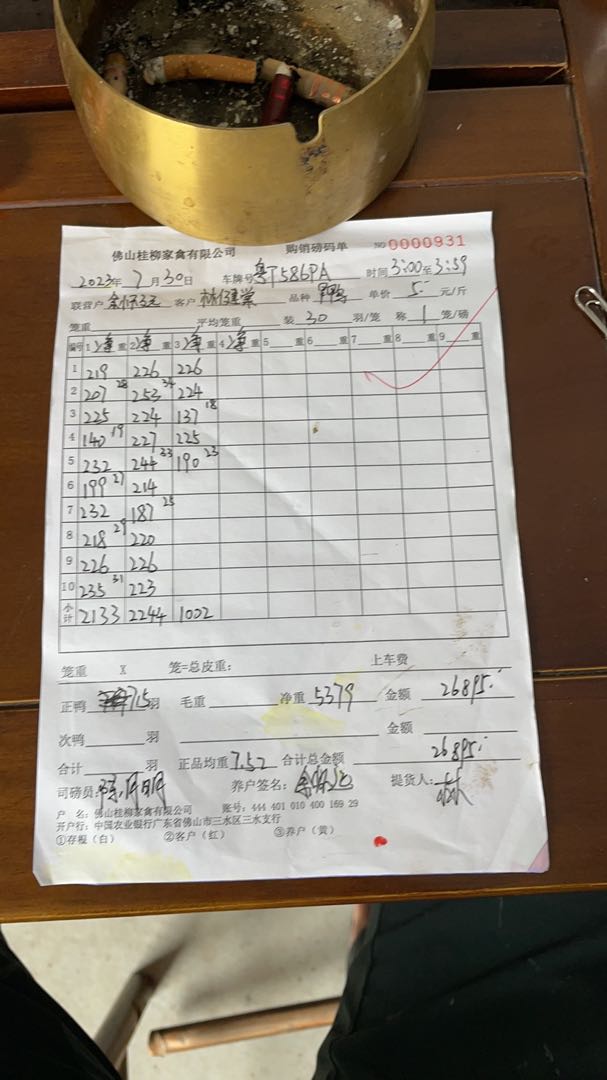 佛山桂柳家禽有限公司 购销磅码单 NO 0000931
2023年 7月30日 车牌号 粤T586PA 时间 3:00至3:59
联营户 客户 林 品种 单价 5 元/斤
笼重 平均笼重 装 30 羽/笼 称 1 笼/磅
编号 1 净重 2 净重 3 净重 4 净重 5 重 6 重 7 重 8 重 9 重
1 219 226 226
2 207 28 253 34 224
3 225 224 137 18
4 140 19 227 225
5 232 244 33 190 23
6 199 27 214
7 232 187 25
8 218 29 220
9 226 226
10 235 31 223
小计 2133 2244 1002
笼重 X 笼=总皮重: 上车费
正鸭 715 羽 毛重 净重 5379 金额 26895.
次鸭 羽 金额
合计 羽 正品均重 7.52 合计总金额 26895.
司磅员: 养户签名: 提货人: 林
户 名: 佛山桂柳家禽有限公司 账号: 444 401 010 400 169 29
开户行: 中国农业银行广东省佛山市三水区三水支行
①存根(白) ②客户(红) ③养户(黄)